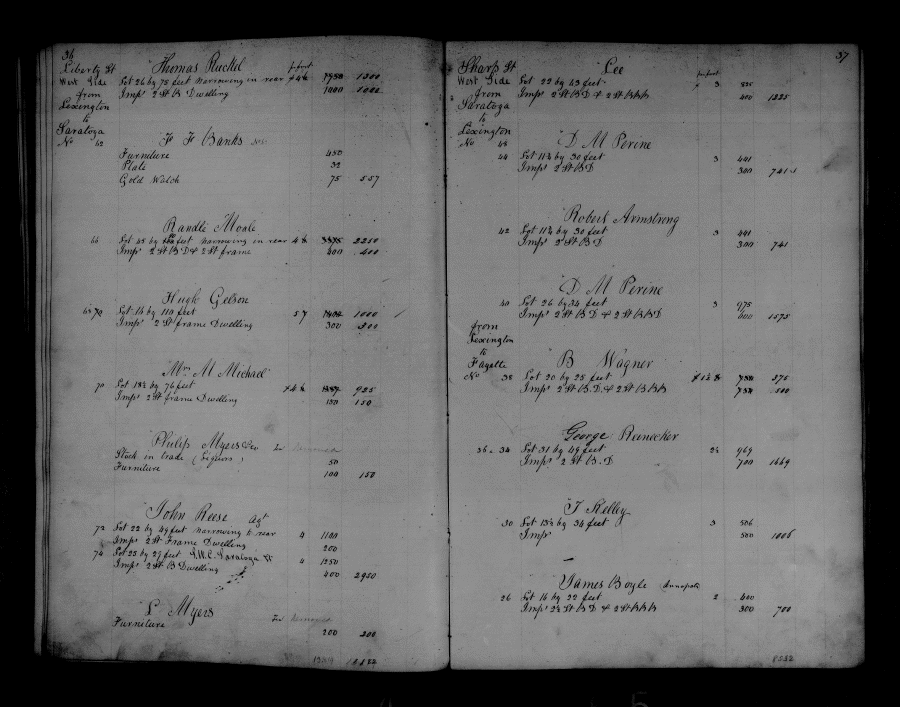 36
Liberty St
West Side
from
Lexington
to
Saratoga
No 62
Thomas Ruckel
Lot 26 by 75 feet narrowing in rear 1950 1300
Imps 2 St B Dwelling 1000 1000
F F Banks
Furniture 450
Plate 32
Gold Watch 75 557
Randle Moale
66 Lot 45 by feet narrowing in rear 2250
Imps 2 St B D & 2 St frame 400 400
Hugh Gelson
70 Lot 16 by 110 feet 57 1000
Imps 2 St frame Dwelling 300 300
Mrs M Michael
70 Lot 18½ by 76 feet 925
Imps 2 St frame Dwelling 150 150
Philip Myers
Stock in trade (Liquors) 50
Furniture 100 150
John Reese Agt
72 Lot 22 by 49 feet narrowing to rear 4 1100
Imps 2 St Frame Dwelling 200
74 Lot 25 by 27 feet S.W.C. Saratoga St 4 1250
Imps 2 St B Dwelling 400 2950
L Myers
Furniture 200 200
37
Sharp St
West Side
from
Saratoga
to
Lexington
No 48
Lee
Lot 22 by 43 feet 3 825
Imps 2 St B D & 2 St B 400 1225
D M Perine
44 Lot 11¼ by 30 feet 3 441
Imps 2 St B D 300 741
Robert Armstrong
42 Lot 11¼ by 30 feet 3 441
Imps 2 St B D 300 741
D M Perine
40 Lot 26 by 34 feet 3 975
Imps 2 St B D & 2 St B B D 600 1575
from
Lexington
to
Fayette
No 38
B Wagner
Lot 20 by 25 feet 375
Imps 2 St B D & 2 St B 500
George Reinecker
36 & 34 Lot 31 by 49 feet 2½ 969
Imps 2 St B D 700 1669
T Kelley
30 Lot 13½ by 34 feet 3 506
Imps 500 1006
James Boyle Annapolis
26 Lot 16 by 22 feet 2 400
Imps 2½ St B D & 2 St B 300 700
8532